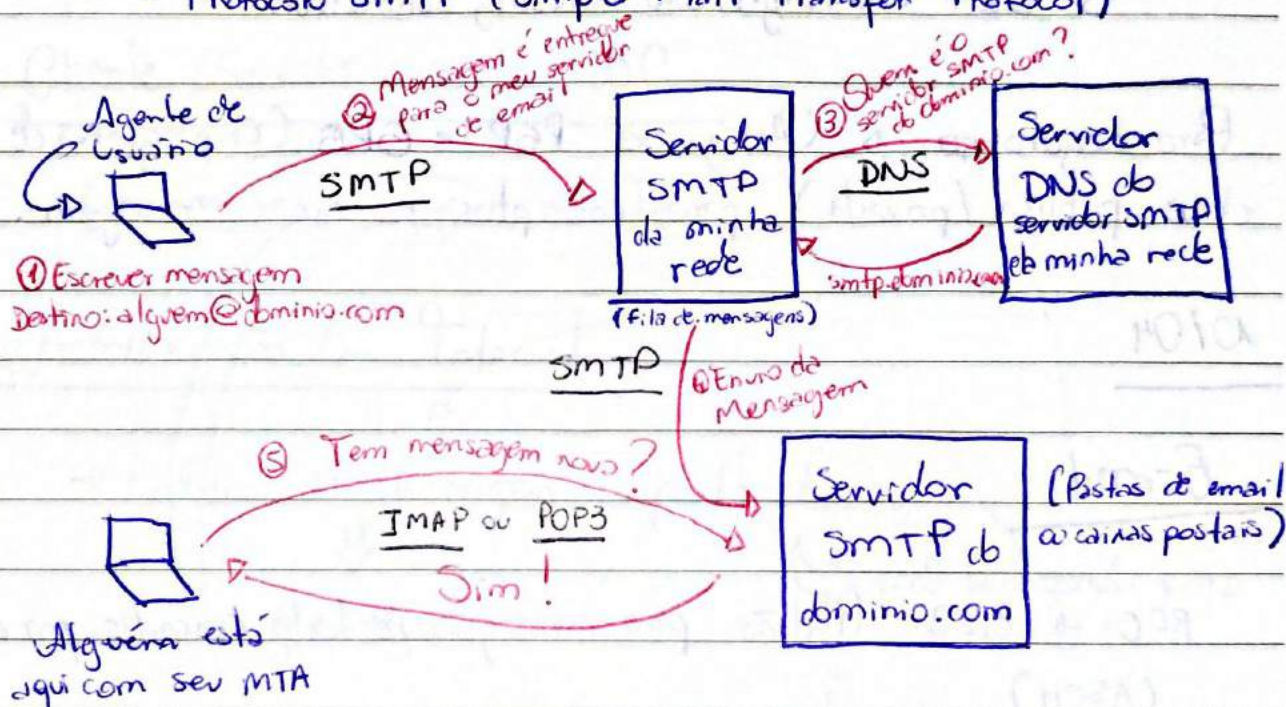 Protocolo SMTP (Simple Mail Transfer Protocol)
Agente de
Usuário
① Escrever mensagem
Destino: alguem@dominio.com
② Mensagem é entregue
para o meu servidor
de email
SMTP
Servidor
SMTP
da minha
rede
(fila de mensagens)
③ Quem é o
servidor SMTP
do dominio.com?
DNS
smtp.dominio.com
Servidor
DNS do
servidor SMTP
da minha rede
SMTP
④ Envio da
Mensagem
10/04
⑤ Tem mensagem nova?
IMAP ou POP3
Sim!
Servidor
SMTP do
dominio.com
(Pastas de email
ou caixas postais)
Alguém está
aqui com seu MTA